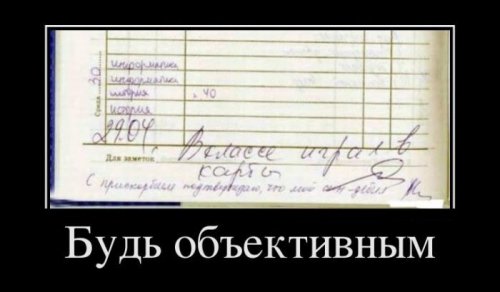 информатика
информатика
история
§ 40
история
Среда 30
29.04.
В классе играл в
карты
Для заметок
С прискорбием подтверждаю, что мой сын - дебил
Будь объективным